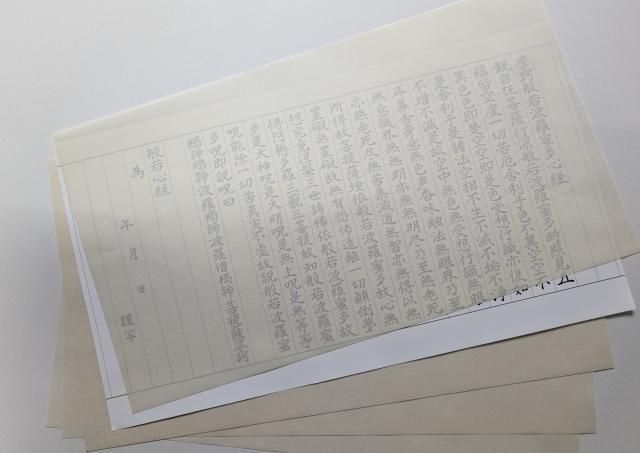 摩訶般若波羅蜜多心経
観自在菩薩行深般若波羅蜜多時照見五
蘊皆空度一切苦厄舎利子色不異空空不
異色色即是空空即是色受想行識亦復如
是舎利子是諸法空相不生不滅不垢不
不増不減是故空中無色無受想行識無眼
耳鼻舌身意無色声香味触法無眼界乃至
無意識界無無明亦無無明尽乃至無老死
亦無老死尽無苦集滅道無智亦無得以無
所得故菩提薩埵依般若波羅蜜多故心無
罣礙無罣礙故無有恐怖遠離一切顛倒夢
想究竟涅槃三世諸佛依般若波羅蜜多故
得阿耨多羅三藐三菩提故知般若波羅蜜
多是大神呪是大明呪是無上呪是無等等
呪能除一切苦真実不虚故説般若波羅蜜
多呪即説呪曰
羯諦羯諦波羅羯諦波羅僧羯諦菩提薩婆訶
般若心経
為
年 月 日 謹写